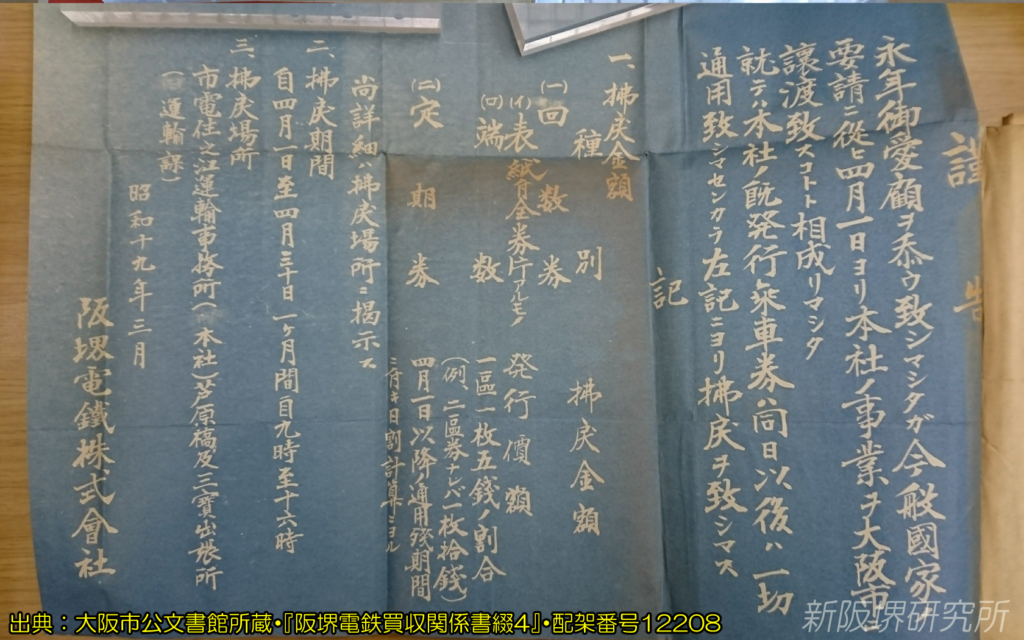 謹告
永年御愛顧ヲ忝ウ致シマシタガ今般國家
要請ニ從ヒ四月一日ヨリ本社ノ事業ヲ大阪市ニ
讓渡致スコトト相成リマシタ
就テハ本社ノ既発行乘車券ハ同日以後ハ一切
通用致シマセンカラ左記ニヨリ拂戻ヲ致シマス
記
一、拂戻金額
種別 拂戻金額
(一)回数券
(イ)表紙付全券片アルモノ 発行價額
(ロ)端数 一區一枚五錢ノ割合
(例 二區券ナレバ一枚拾錢)
(二)定期券 四月一日以降ノ通用残期間
ニ付キ日割計算ニヨル
尚詳細ハ拂戻場所ニ掲示ス
二、拂戻期間
自四月一日至四月三十日 一ヶ月間自九時至十六時
三、拂戻場所
市電住之江運輸事務所(本社)芦原橋及三寶出張所
(運輸課)
昭和十九年三月
阪堺電鐵株式會社
出典：大阪市公文書館所蔵・『阪堺電鉄買収関係書綴4』・配架番号12208
新阪堺研究所